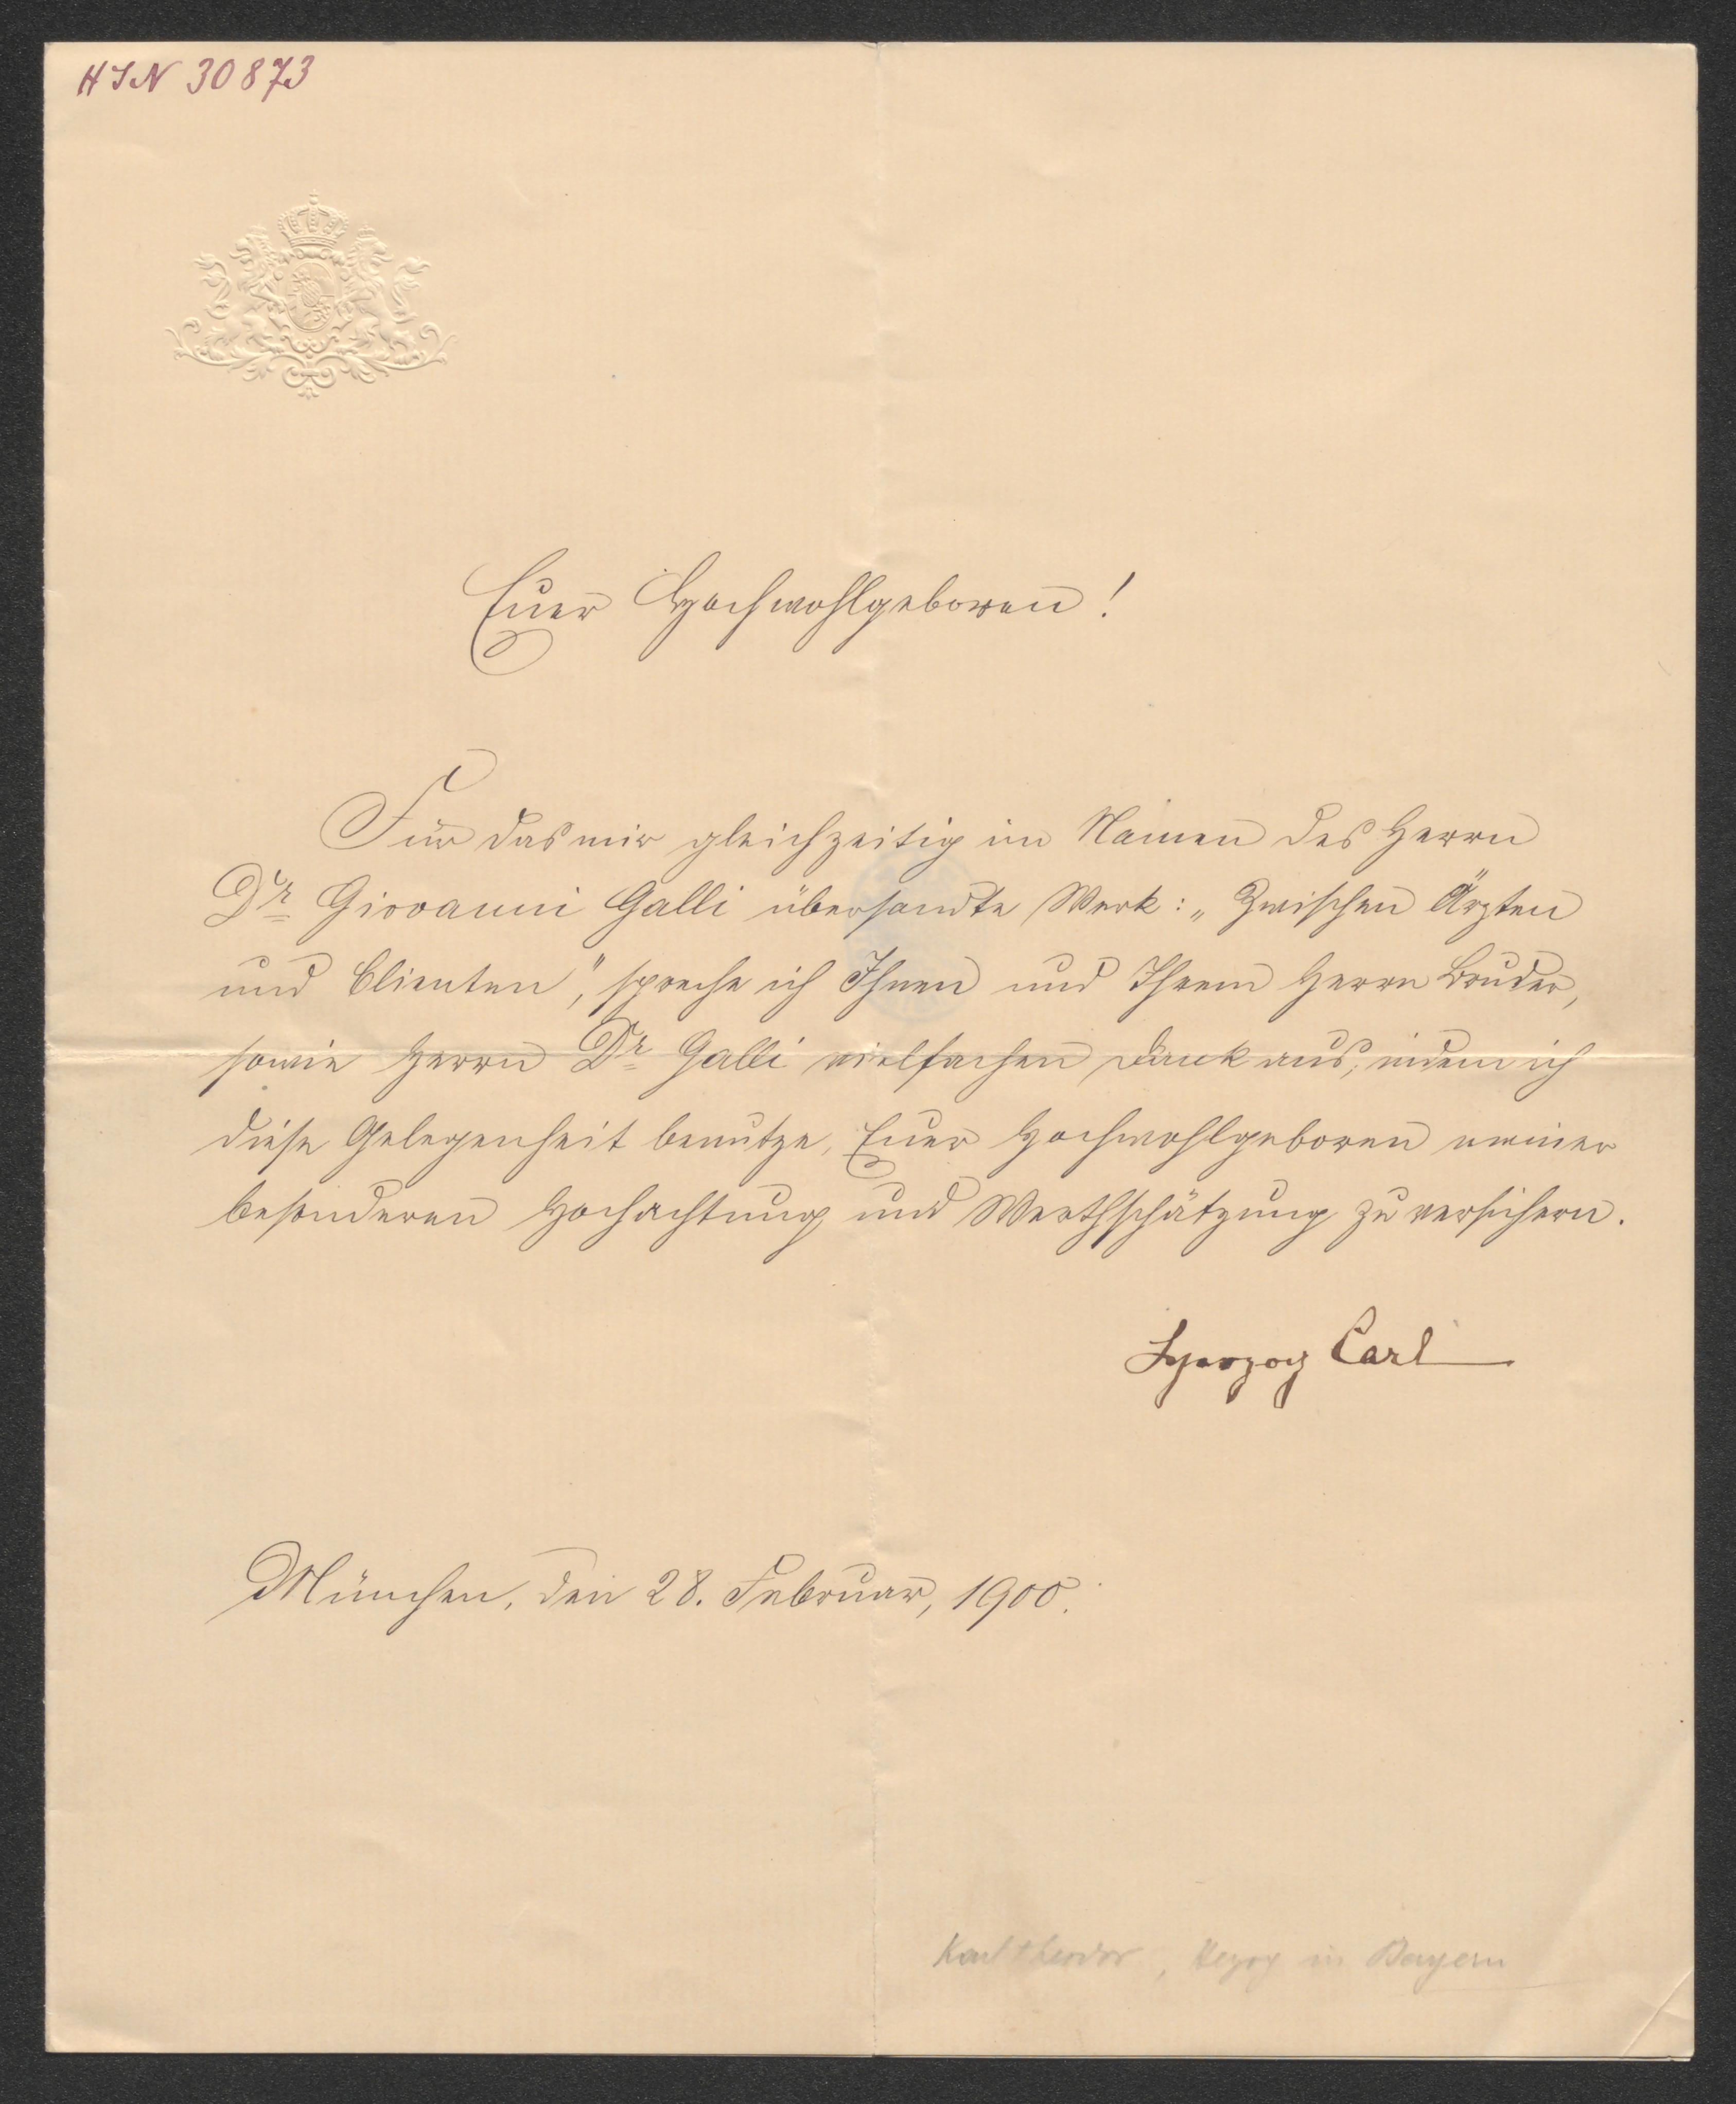 HIN 30873
Euer Hochwohlgeboren!
Für das mir gleichzeitig im Namen des Herrn
Dr Giovanni Galli übersandte Werk: „Zwischen Ärzten
und Clienten", spreche ich Ihnen und Ihrem Herrn Bruder,
sowie Herrn Dr Galli vielfachen Dank aus, indem ich
diese Gelegenheit benutze, Euer Hochwohlgeboren meiner
besonderen Hochachtung und Werthschätzung zu versichern.
Herzog Carl
München, den 28. Februar, 1900.
Karl Theodor, Herzog in Bayern